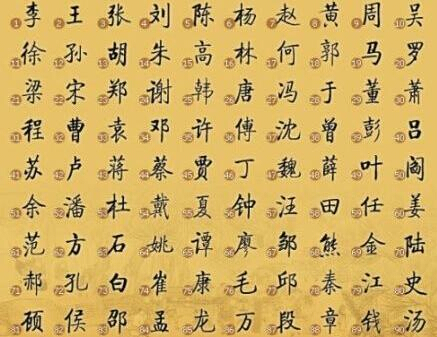 1 李 2 王 3 张 4 刘 5 陈 6 杨 7 赵 8 黄 9 周 10 吴
11 徐 12 孙 13 胡 14 朱 15 高 16 林 17 何 18 郭 19 马 20 罗
21 梁 22 宋 23 郑 24 谢 25 韩 26 唐 27 冯 28 于 29 董 30 萧
31 程 32 曹 33 袁 34 邓 35 许 36 傅 37 沈 38 曾 39 彭 40 吕
41 苏 42 卢 43 蒋 44 蔡 45 贾 46 丁 47 魏 48 薛 49 叶 50 阎
51 余 52 潘 53 杜 54 戴 55 夏 56 钟 57 汪 58 田 59 任 60 姜
61 范 62 方 63 石 64 姚 65 谭 66 廖 67 邹 68 熊 69 金 70 陆
71 郝 72 孔 73 白 74 崔 75 康 76 毛 77 邱 78 秦 79 江 80 史
81 顾 82 侯 83 邵 84 孟 85 龙 86 万 87 段 88 章 89 钱 90 汤